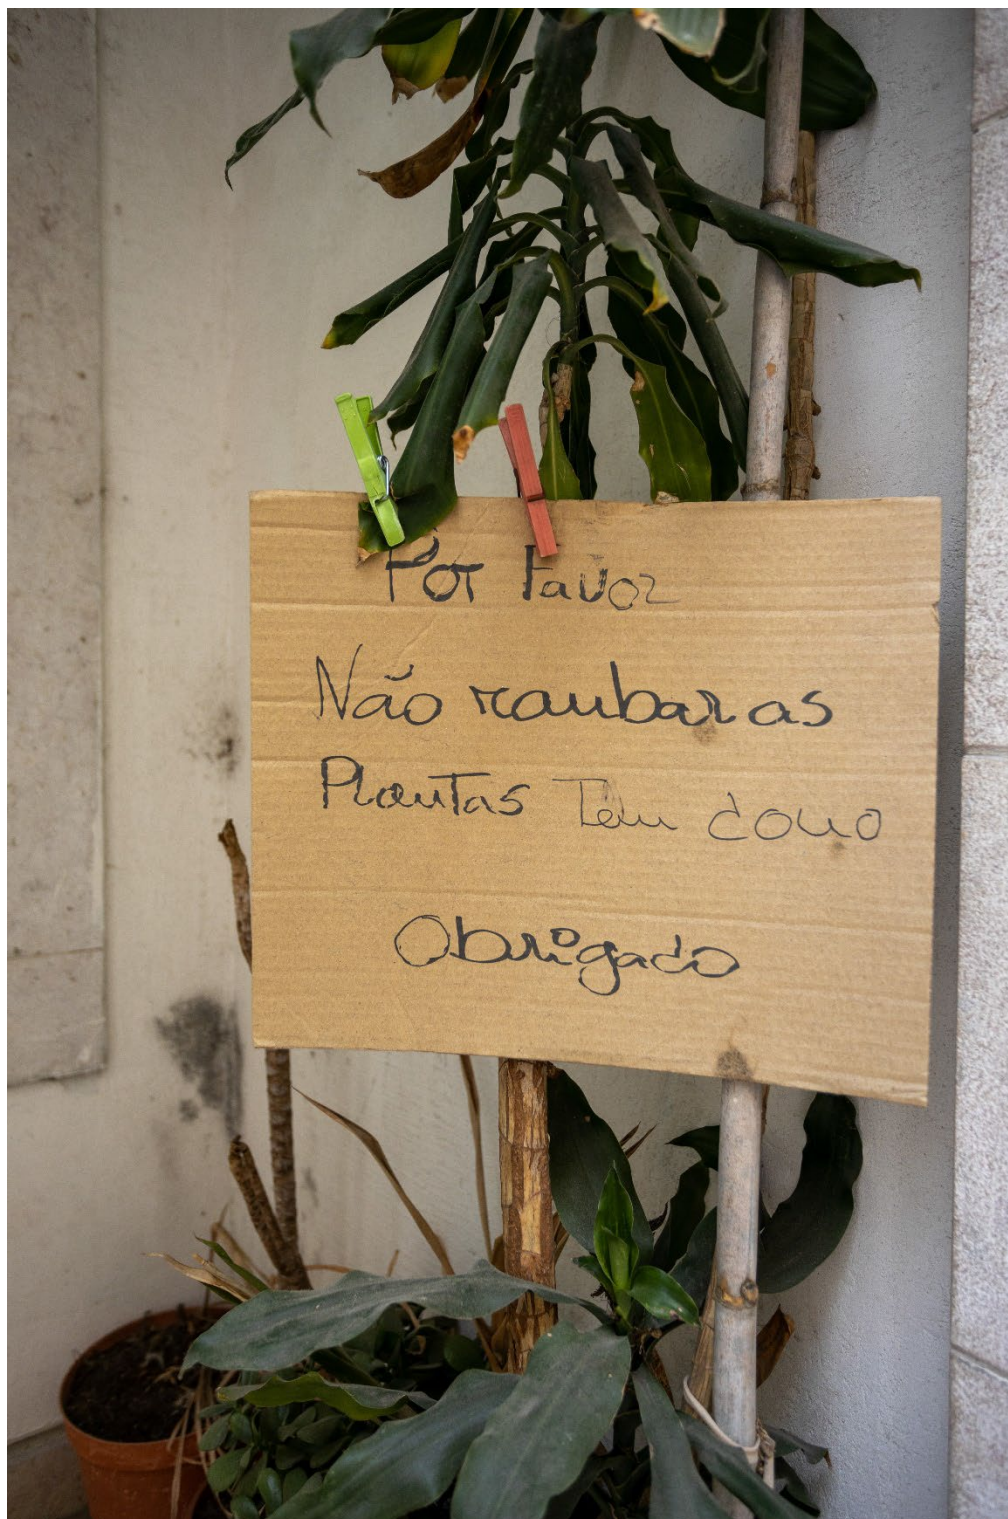 Por Favor
Não roubar as
Plantas Tem dono
Obrigado